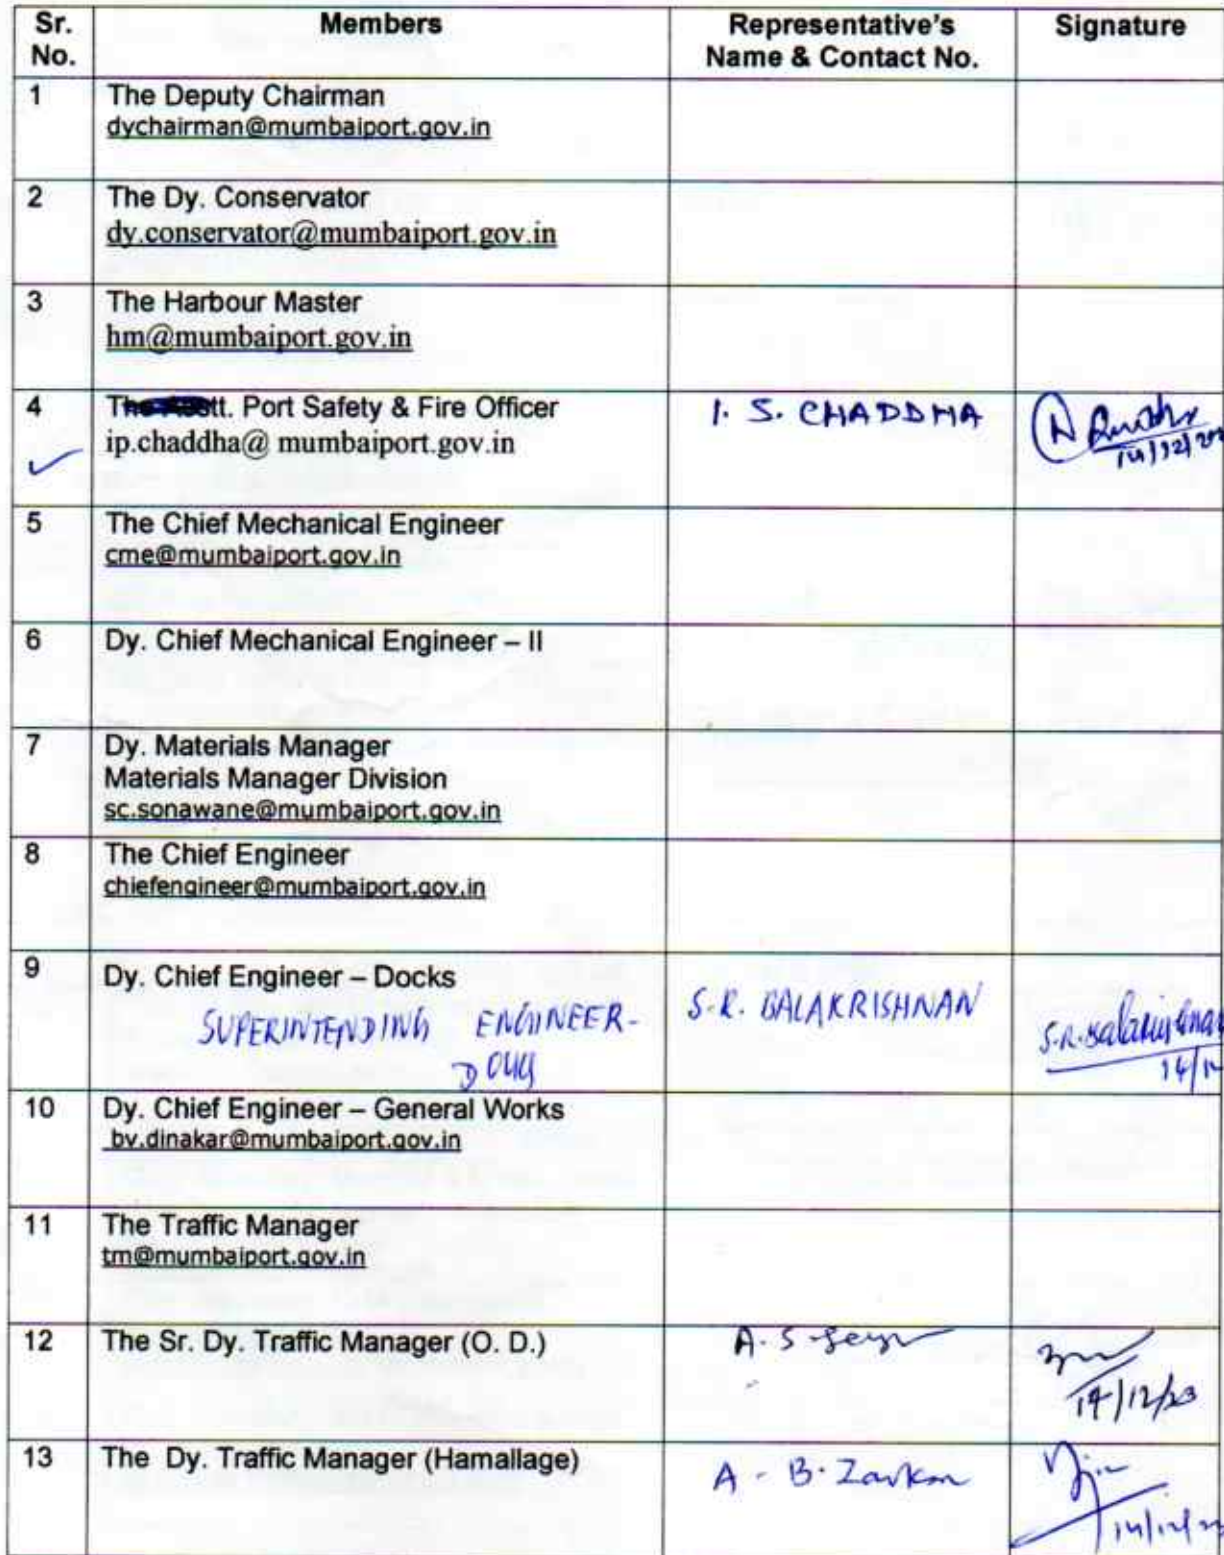 Sr. No. Members Representative's Name & Contact No. Signature
1 The Deputy Chairman
dychairman@mumbaiport.gov.in
2 The Dy. Conservator
dy.conservator@mumbaiport.gov.in
3 The Harbour Master
hm@mumbaiport.gov.in
4 The Asstt. Port Safety & Fire Officer I. S. CHADDHA
ip.chaddha@ mumbaiport.gov.in
14/12/202
5 The Chief Mechanical Engineer
cme@mumbaiport.gov.in
6 Dy. Chief Mechanical Engineer – II
7 Dy. Materials Manager
Materials Manager Division
sc.sonawane@mumbaiport.gov.in
8 The Chief Engineer
chiefengineer@mumbaiport.gov.in
9 Dy. Chief Engineer – Docks
SUPERINTENDING ENGINEER- S.R. BALAKRISHNAN S.R. Balakrishnan
14/1
10 Dy. Chief Engineer – General Works
bv.dinakar@mumbaiport.gov.in
11 The Traffic Manager
tm@mumbaiport.gov.in
12 The Sr. Dy. Traffic Manager (O. D.) A. S.
14/12/23
13 The Dy. Traffic Manager (Hamallage) A - B.
14/12/2